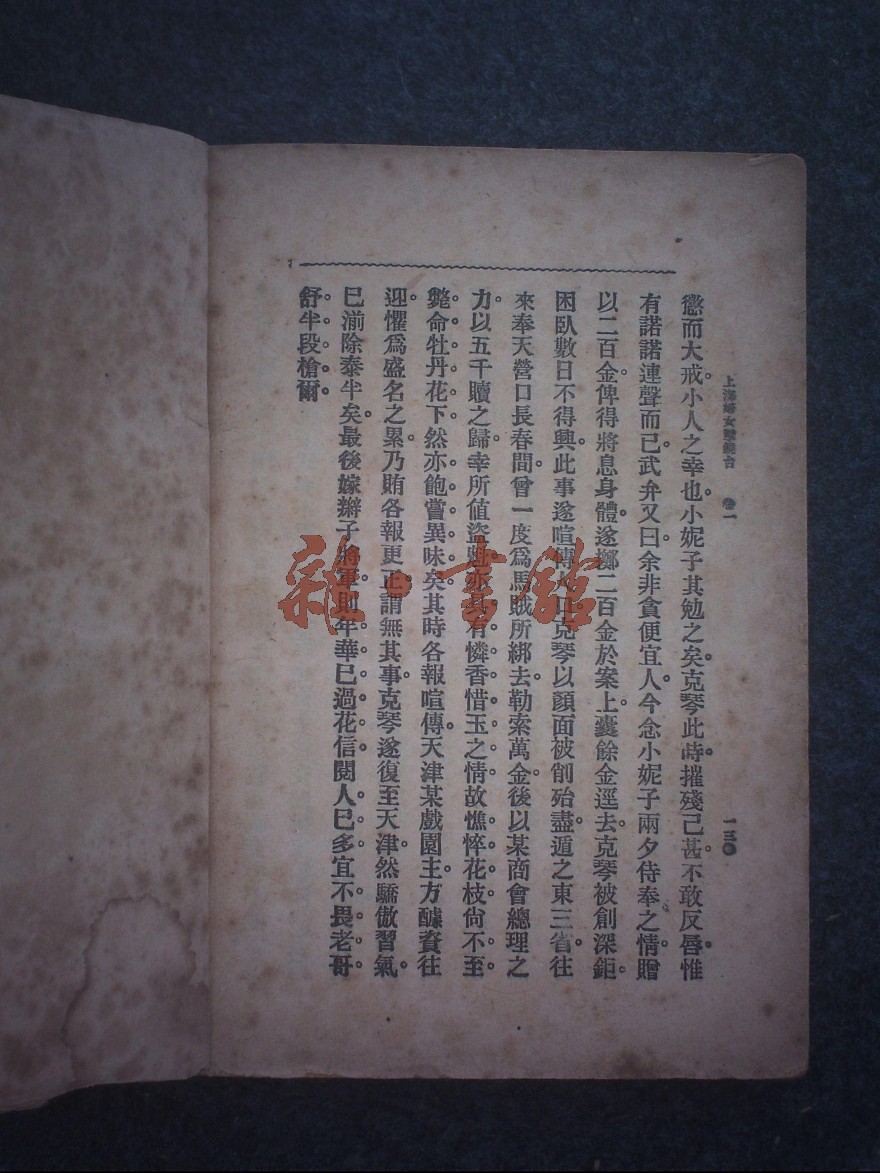 上海婦女孽鏡台 卷一 一三〇
懲而大戒。小人之幸也。小妮子其勉之矣。克琴此時摧殘已甚。不敢反唇。惟
有諾諾連聲而已。武弁又曰。余非貪便宜人。今念小妮子兩夕侍奉之情。贈
以二百金。俾得將息身體。遂擲二百金於案上。囊餘金逕去。克琴被創深鉅。
困臥數日不得興。此事遂喧傳人口。克琴以顏面被削殆盡。遁之東三省。往
來奉天營口長春間。曾一度爲馬賊所綁去。勒索萬金。後以某商會總理之
力。以五千贖之歸。幸所値盜魁亦具有憐香惜玉之情。故憔悴花枝。尙不至。
斃命牡丹花下。然亦飽嘗異味矣。其時各報喧傳。天津某戲園主。方醵資往
迎。懼爲盛名之累。乃賄各報更正。謂無其事。克琴遂復至天津。然驕傲習氣。
已湔除泰半矣。最後嫁辮子將軍。則年華已過花信。閱人已多。宜不畏老哥
舒半段槍爾。
雜·書館